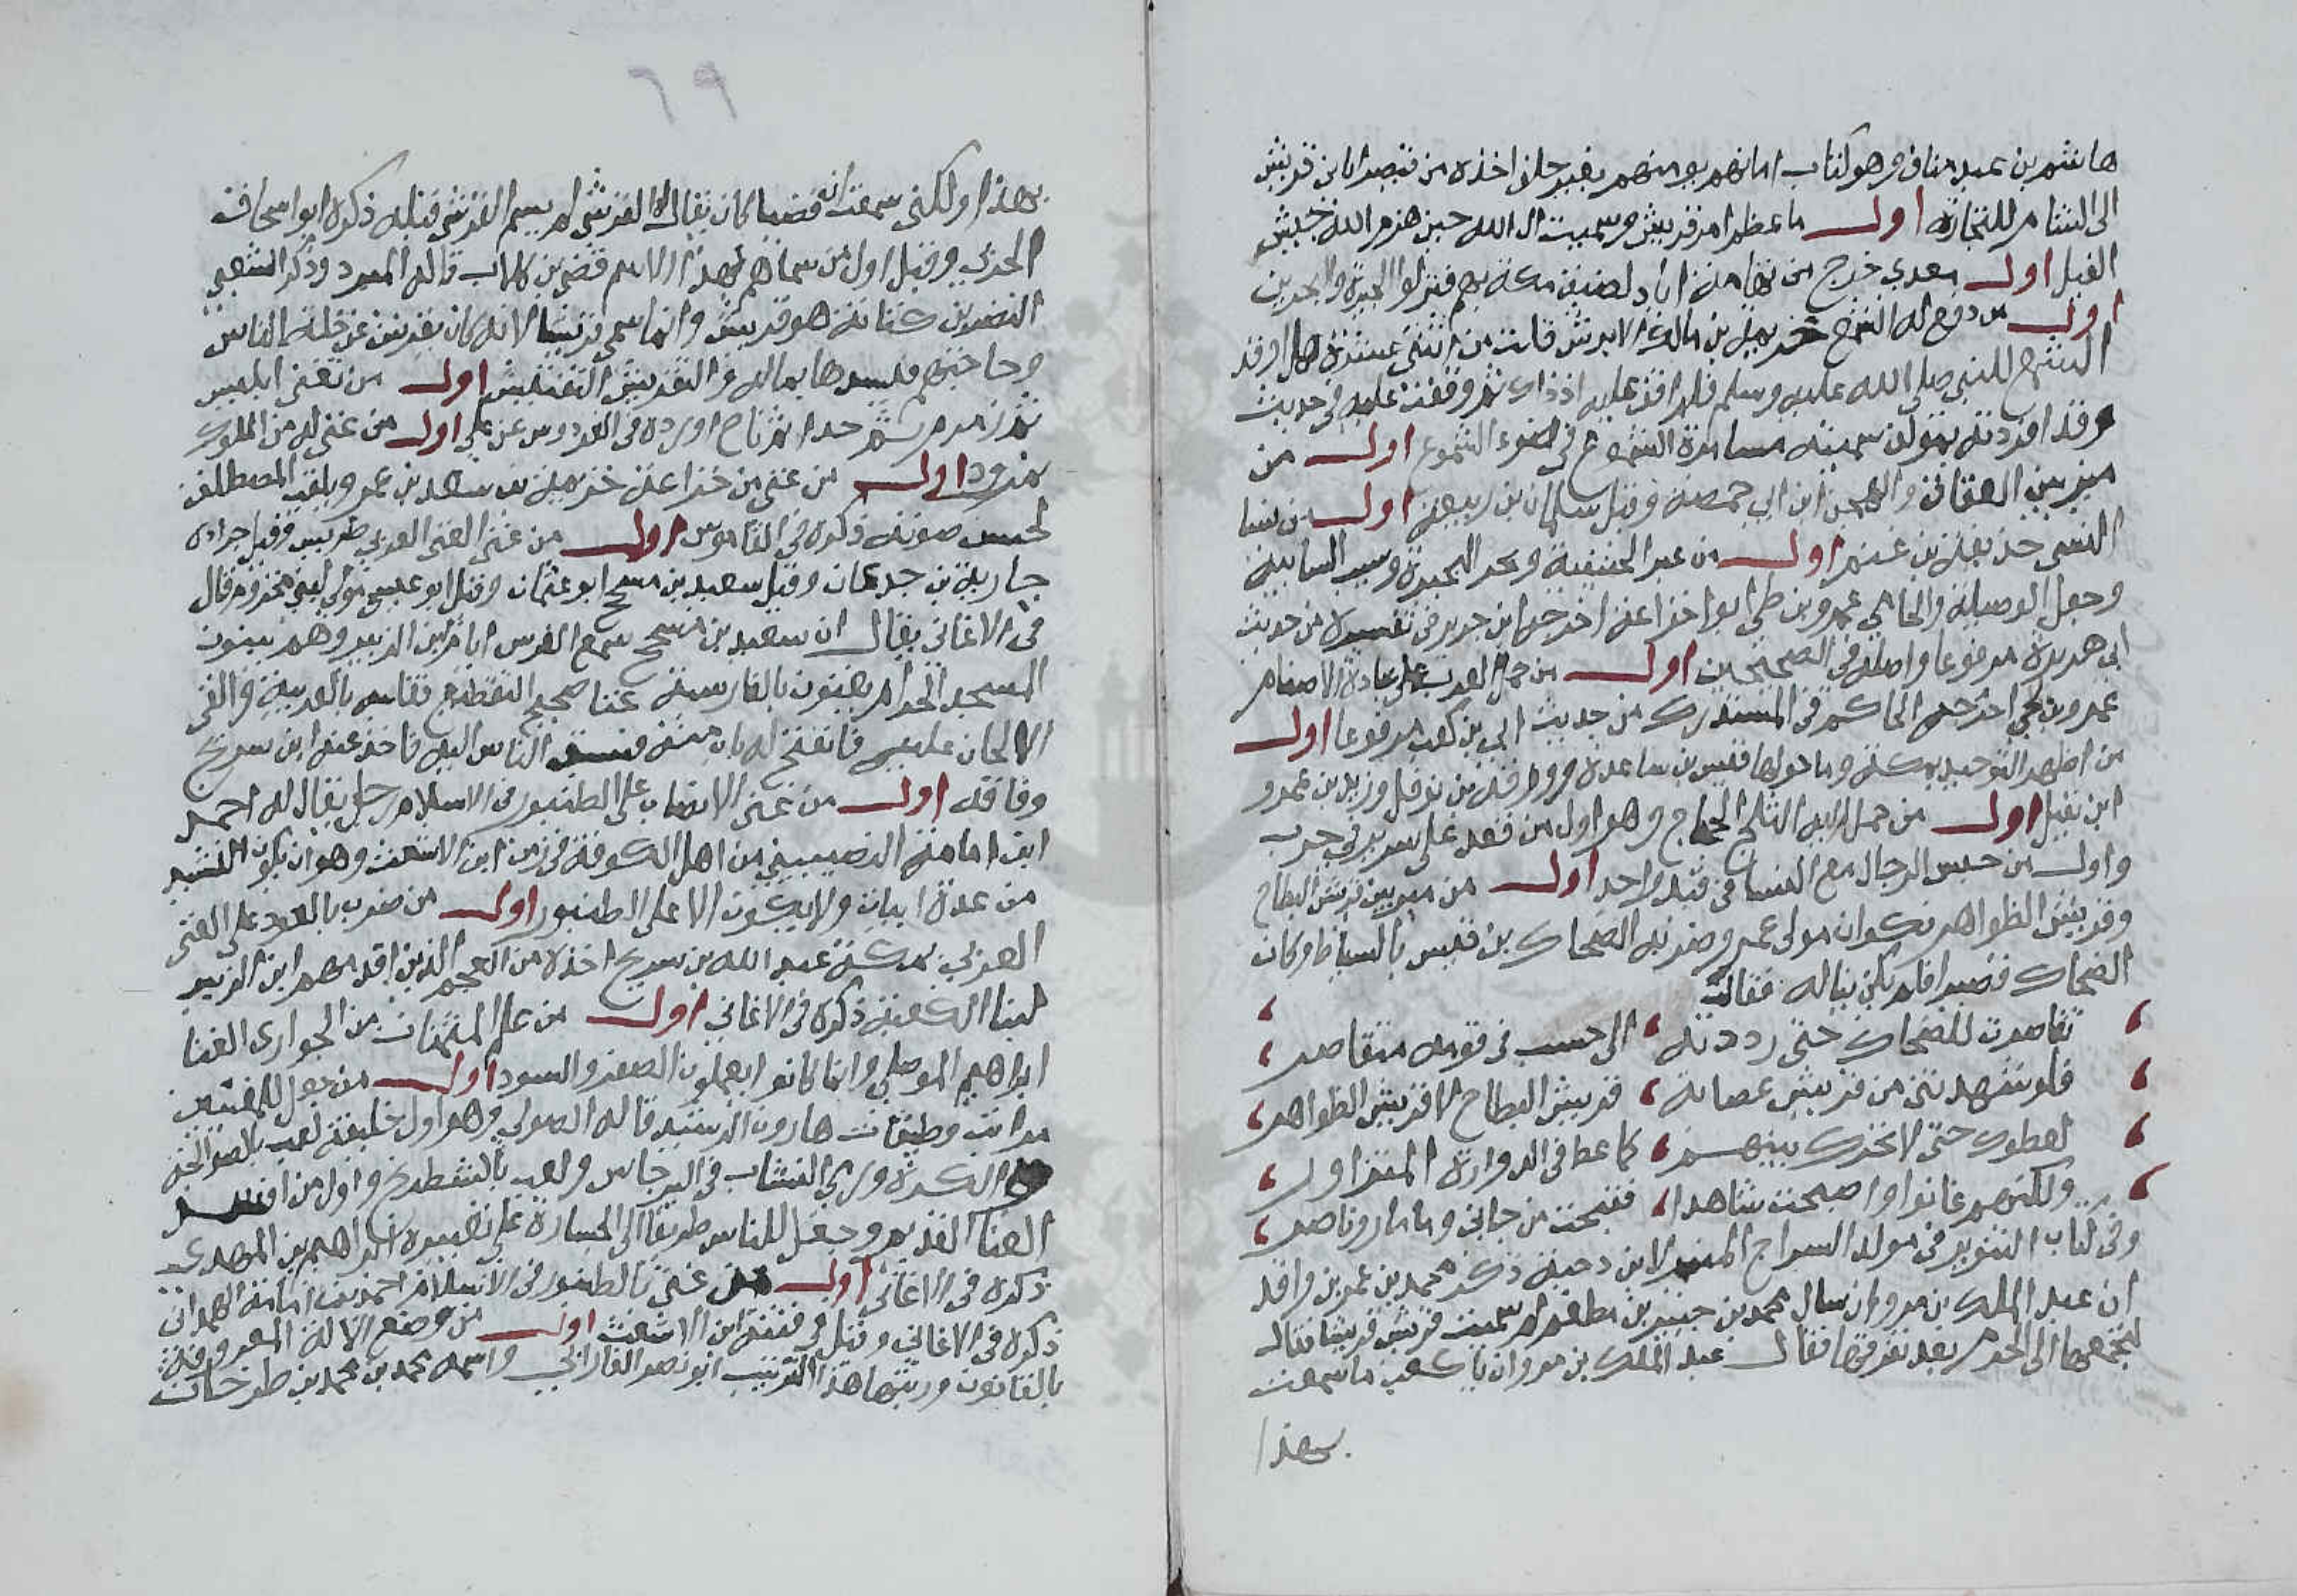 هاشم بن عبد مناف وهو كتاب امانهم يومنهم بغير حلف اخذه من قيصر امانا لقريش
الى الشام للتجارة اول ما عظم امر قريش وسميت ال الله حين هزم الله جيش
الفيل اول معدي خرج من تهامة اياد لضيق مكة بهم فنزلوا الحيرة والبحرين
اول من رفع له الشمع خزيمة بن مالك الابرش قلت من اثنتي عشرة هل اوقد
الشمع للنبي صلى الله عليه وسلم فلم اقف عليه اذ ذاك ثم وقفت عليه في حديث
وقد افردته بمولف سميته مسامرة الشموع في ضوء الشموع اول من
ميز بين العتاق والهجن ابن ابي حمصة وقيل سلمان بن ربيعة اول من نسا
النسي حذيفة بن غنم اول من غير الحنيفية وبحر البحيرة وسيب السايبة
وجعل الوصيلة والحامي عمرو بن لحي ابو خزاعة اخرجه ابن جرير في تفسيره من حديث
ابي هريرة مرفوعا واصله في الصحيحين اول من حمل العرب على عبادة الاصنام
عمرو بن لحي اخرجه الحاكم في المستدرك من حديث ابي بن كعب مرفوعا اول
من اظهر التوحيد بمكة وما حولها قيس بن ساعدة وورقة بن نوفل وزيد بن عمرو
ابن نفيل اول من حمل اليه الثلج الحجاج وهو اول من قعد على سرير في حرب
واول من حبس الرجال مع النساء في قيد واحد اول من ميز بين قريش البطاح
وقريش الظواهر ذكوان مولى عمر وضربه الضحاك بن قيس بالسياط وكان
الضحاك قصيرا فلم يكن يناله فقال
تقاصرت للضحاك حتى رددته الى حسب في قومه متقاصر
فلو شهدتني من قريش عصابة قريش البطاح لا قريش الظواهر
لغطوك حتى لا تحرك بينهم كما غط في الدوارة المتزاور
ولكنهم غابوا واصبحت شاهدا فقبحت من حاني وما ما روناصر
وفي كتاب التنوير في مولد السراج المنير لابن دحية ذكر محمد بن عمر بن واقد
ان عبد الملك بن مروان سال محمد بن جبير بن مطعم لم سميت قريش قريشا فقال
لتجمعها الى الحرم بعد تفرقها فقال عبد الملك بن مروان ياكعب ما سمعت
بهذا
٦٩
بهذا ولكني سمعت انه قصيا كان يقال له القرشي لم يسم القرشي قبله ذكره ابو اسحاق
الحربي وقيل اول من سماهم بهذا الاسم قصي بن كلاب قاله المبرد وذكر الشعبي
النضر بن كنانة هو قريش وانما سمي قريشا لانه كان يقرش عن خلة الناس
وحاجتهم فيسدها بماله والتقريش التفتيش اول من تغنى ابليس
ثم زمزم ثم حدا ثم ناح اورده في الفردوس عن علي اول من غنى له من الملوك
نمرود اول من غنى من خزاعة خزيمة بن سعد بن عمرو يلقب المصطلق
لحسن صوته ذكره في القاموس اول من غنى الغنى العربي طويس وقيل جرادى
جارية بن جدعان وقيل سعيد بن مسجح ابو عثمان وقيل ابو عيسى مولى لبني مخزوم قال
في الاغاني يقال ان سعيد بن مسجح سمع الفرس ايام ابن الزبير وهم يبنون
المسجد الحرام يغنون بالفارسية غنا صحيح التقطيع فقاسه بالعربية والقى
الالحان عليه فانفتح له باب منه فسبق الناس اليه فاخذ عنه ابن سريج
وفاقه اول من غنى الانصاب على الطنبور في الاسلام رجل يقال له احمد
ابن امامة النصيبيني من اهل الكوفة في زمن ابن الاشعث وهو ان يكون النشيد
من عدة ابيات ولا يكون الا على الطنبور اول من ضرب بالعود على الغنى
العربي بمكة عبد الله بن سريج اخذه من العجم الذين اقدمهم ابن الزبير
لبنا الكعبة ذكره في الاغاني اول من علم المثمنات من الجواري الغنا
ابراهيم الموصلي وانما كانوا يعلمون الصفر والسود اول من جعل للمغنين
مراتب وطبقات هارون الرشيد قاله الصولي وهو اول خليفة لعب بالصوالجة
والكرة ورمي النشاب في البرجاس ولعب بالشطرنج واول من افسد
الغنا القديم وجعل للناس طريقا الى الجسارة على تغييره ابراهيم بن المهدي
ذكره في الاغاني اول من غنى بالطنبور في الاسلام احمد بن امامة الهمداني
ذكره في الاغاني وقتل في فتنة ابن الاشعث اول من وضع الالة المعروفة
بالقانون ورتبها هذا الترتيب ابو نصر الفارابي واسمه محمد بن محمد بن طرخان